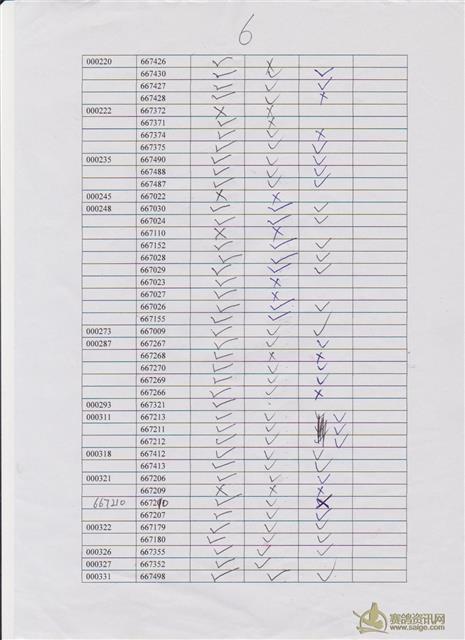 6
000220 667426 ✓ ✗
667430 ✓ ✓ ✓
667427 ✓ ✓ ✓
667428 ✓ ✓ ✗
000222 667372 ✗ ✗
667371 ✓ ✗
667374 ✓ ✓ ✗
667375 ✓ ✓ ✓
000235 667490 ✓ ✓ ✓
667488 ✓ ✓ ✓
667487 ✓ ✓ ✓
000245 667022 ✗ ✗
000248 667030 ✓ ✓ ✓
667024 ✓ ✓ ✓
667110 ✗ ✗
667152 ✓ ✓ ✓
667028 ✓ ✓ ✓
667029 ✓ ✓ ✓
667023 ✓ ✗
667027 ✓ ✗
667026 ✓ ✓ ✓
667155 ✓ ✓
000273 667009 ✓ ✓ ✓
000287 667267 ✓ ✓ ✓
667268 ✓ ✗ ✗
667270 ✓ ✓ ✓
667269 ✓ ✓ ✓
667266 ✓ ✓ ✗
000293 667321 ✓
000311 667213 ✓ ✓ ✓
667211 ✓ ✓ ✓
667212 ✓ ✓ ✓
000318 667412 ✓ ✓ ✓
667413 ✓ ✓ ✓
000321 667206 ✓ ✓ ✓
667209 ✗ ✗ ✗
667210 667210 ✓ ✓ ✗
667207 ✓ ✓ ✓
000322 667179 ✓ ✓ ✓
667180 ✓ ✓ ✓
000326 667355 ✓ ✓ ✓
000327 667352 ✓ ✓
000331 667498 ✓ ✓ ✓
赛鸽资讯网
www.saige.com